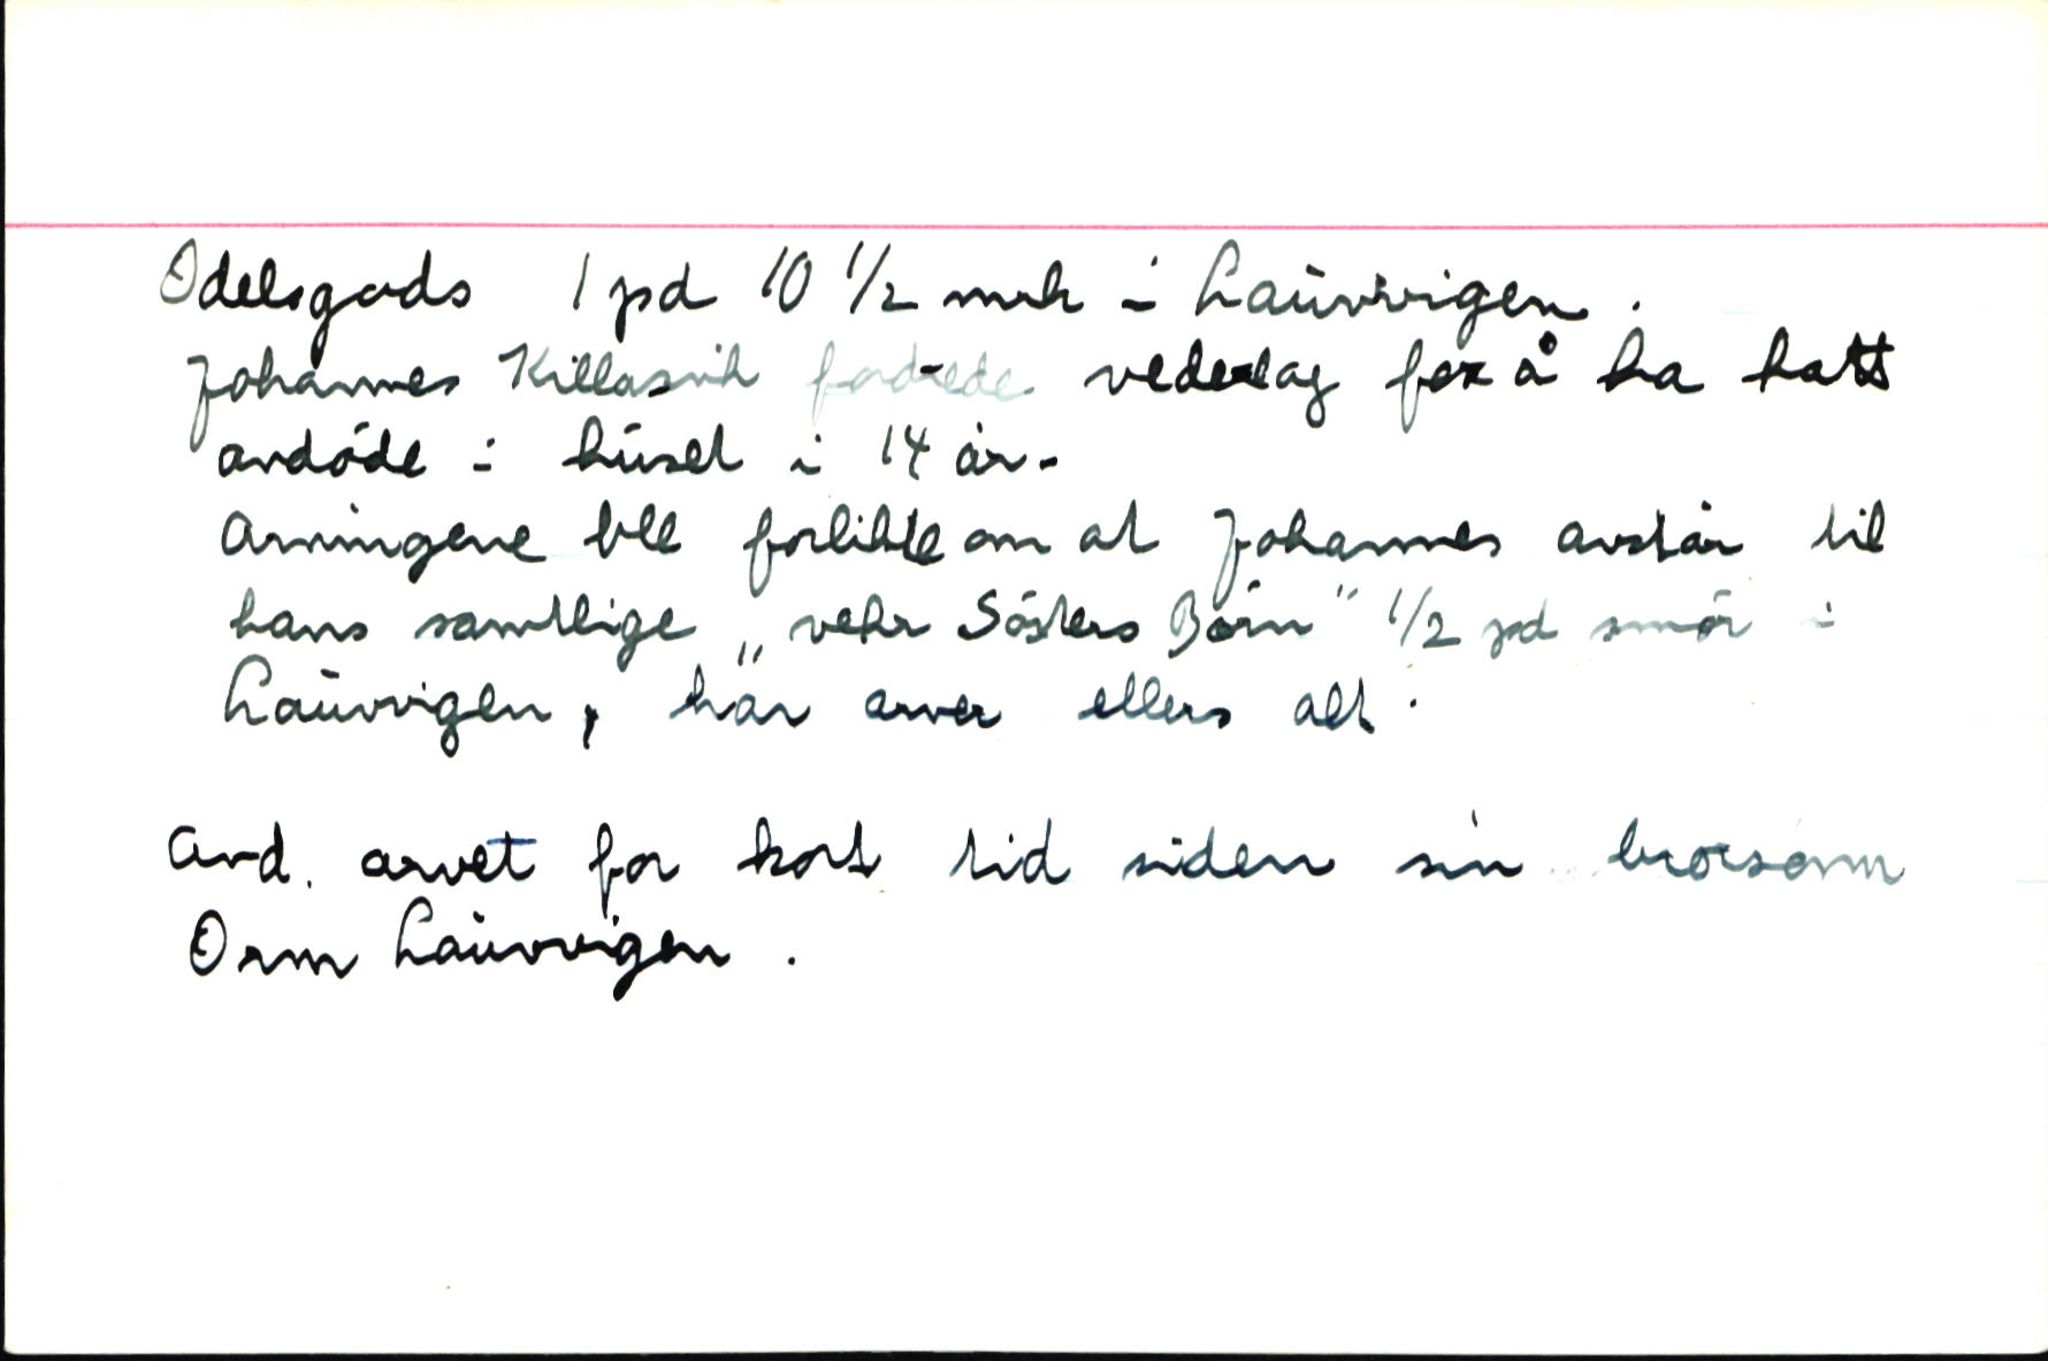 Odelsgods 1 pd 10 1/2 mrk i Lauvvigen.
Johannes Killasvik fordrede vederlag for å ha hatt
avdøde i huset i 14 år.
Arvingene ble forlikte om at Johannes avstår til
hans samtlige „vehr Søsters Børn" 1/2 pd smør i
Lauvvigen, han arver ellers alt.
Avd. arvet for kort tid siden sin brorsønn
Orm Lauvvigen.